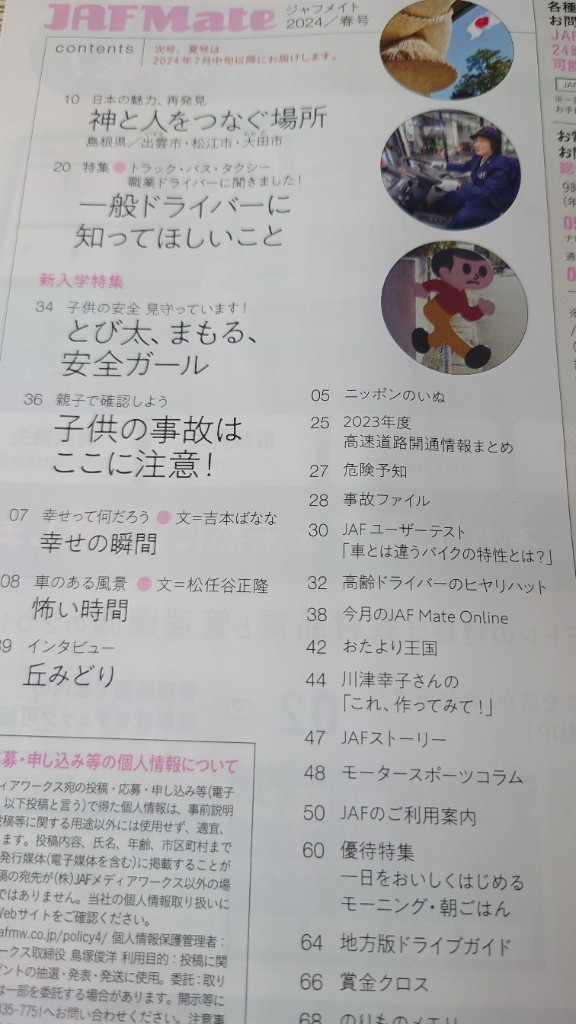 JAF Mate ジャフメイト
2024／春号
contents
次号、夏号は
2024年7月中旬以降にお届けします。
10 日本の魅力、再発見
神と人をつなぐ場所
島根県／出雲市・松江市・大田市
20 特集 ● トラック・バス・タクシー
職業ドライバーに聞きました！
一般ドライバーに
知ってほしいこと
新入学特集
34 子供の安全 見守っています！
とび太、まもる、
安全ガール
36 親子で確認しよう
子供の事故は
ここに注意！
07 幸せって何だろう ● 文＝吉本ばなな
幸せの瞬間
08 車のある風景 ● 文＝松任谷正隆
怖い時間
39 インタビュー
丘みどり
05 ニッポンのいぬ
25 2023年度
高速道路開通情報まとめ
27 危険予知
28 事故ファイル
30 JAF ユーザーテスト
「車とは違うバイクの特性とは？」
32 高齢ドライバーのヒヤリハット
38 今月のJAF Mate Online
42 おたより王国
44 川津幸子さんの
「これ、作ってみて！」
47 JAFストーリー
48 モータースポーツコラム
50 JAFのご利用案内
60 優待特集
一日をおいしくはじめる
モーニング・朝ごはん
64 地方版ドライブガイド
66 賞金クロス
68 のりものメモリ
募・申し込み等の個人情報について
ィアワークス宛の投稿・応募・申し込み等(電子
以下投稿と言う)で得た個人情報は、事前説明
投稿等に関する用途以外には使用せず、適宜、
ます。投稿内容、氏名、年齢、市区町村まで
発行媒体(電子媒体を含む)に掲載することが
稿の宛先が(株)JAFメディアワークス以外の場
ではありません。当社の個人情報取り扱いに
Webサイトをご確認ください。
afmw.co.jp/policy4/ 個人情報保護管理者：
ークス取締役 鳥塚俊洋 利用目的：投稿に関
ゼントの抽選・発表・発送に使用。委託：取り
は一部を委託する場合があります。開示等に
435-775!へお問い合わせください。注意事
各種
お問
JAF
24
可能
お
お問
総
9時
(年